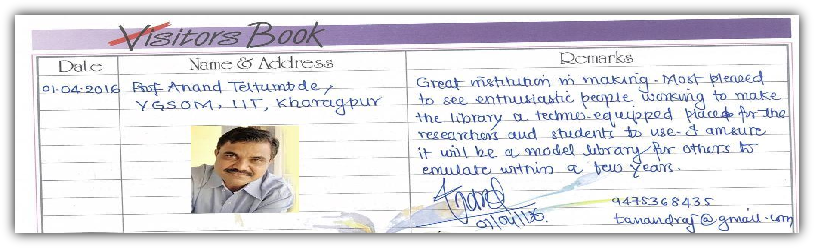 Visitors Book
Date
Name & Address
Remarks
01.04.2016
Prof Anand Teltumbde,
VGSOM, IIT, Kharagpur
Great institution in making. Most pleased
to see enthusiastic people working to make
the library a techno-equipped place for the
researchers and students to use. I am sure
it will be a model library for others to
emulate within a few years.
9475368435
tanandraj@gmail.com